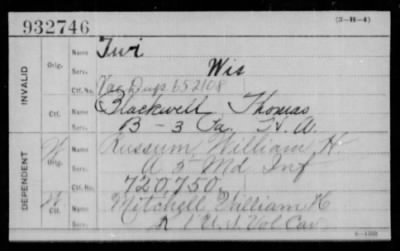 932746
(3-H-4)
INVALID
Orig.
Name
Serv.
Wis
Ctf. No. Vac Dup 652108
Ctf.
Name Blackwell Thomas
Serv. B - 3 Pa. H. A.
DEPENDENT
W
Orig.
Name Russum, William H.
Serv. A 5 Md Inf
Ctf. No. 720,750.
W
Ctf.
Name Mitchell William H
Serv. 1 U.S. Vol Cav